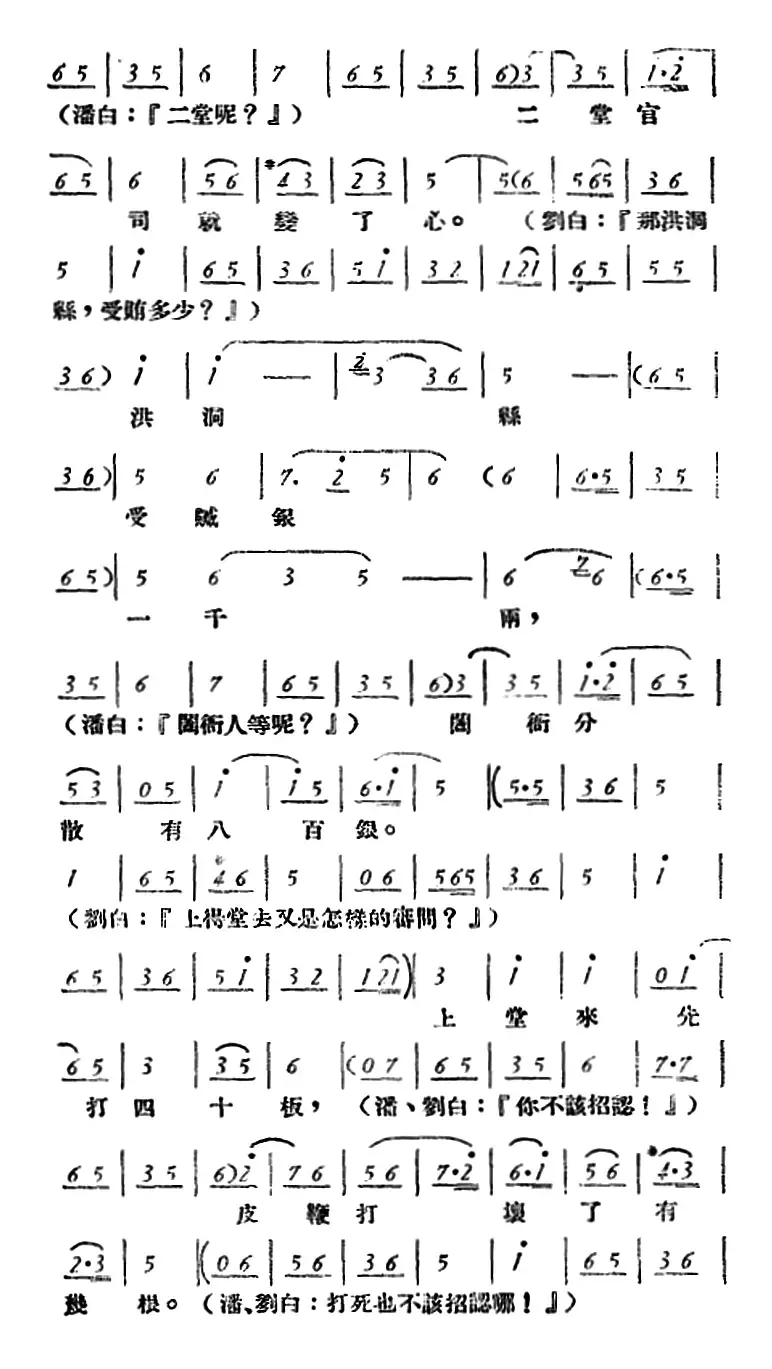 6 5 | 3 5 | 6 | 7 | 6 5 | 3 5 | 6) 3 | 3 5 | 1·2
(潘白：『二堂呢？』) 二 堂 官
6 5 | 6 | 5 6 | #4 3 | 2 3 | 5 | 5 (6 | 5 65 | 3 6 |
司 就 變 了 心。 (劉白：『那洪洞
5 | i | 6 5 | 3 6 | 5 i | 3 2 | 1 21 | 6 5 | 5 5 |
縣，受賄多少？』)
3 6) i | i — | 2 3 3 6 | 5 — | (6 5 |
洪 洞 縣
3 6) | 5 6 | 7. 2 5 | 6 (6 | 6·5 | 3 5 |
受 贓 銀
6 5) | 5 6 3 5 — | 6 7 6 | (6·5 |
一 千 兩，
3 5 | 6 | 7 | 6 5 | 3 5 | 6) 3 | 3 5 | i·2 | 6 5 |
(潘白：『闔衙人等呢？』) 闔 衙 分
5 3 | 0 5 | i | i 5 | 6·i | 5 | (5·5 | 3 6 | 5 |
散 有 八 百 銀。
1 | 6 5 | 4 6 | 5 | 0 6 | 5 65 | 3 6 | 5 | i |
(劉白：『上得堂去又是怎樣的審問？』)
6 5 | 3 6 | 5 i | 3 2 | 1 21) | 3 | i | i | 0 i |
上 堂 來 先
6 5 | 3 | 3 5 | 6 | (0 7 | 6 5 | 3 5 | 6 | 7·7 |
打 四 十 板， (潘、劉白：『你不該招認！』)
6 5 | 3 5 | 6) 2 | 7 6 | 5 6 | 7·2 | 6·i | 5 6 | #4·3 |
皮 鞭 打 壞 了 有
2·3 | 5 | (0 6 | 5 6 | 3 6 | 5 | i | 6 5 | 3 6 |
幾 根。 (潘、劉白：打死也不該招認哪！』)